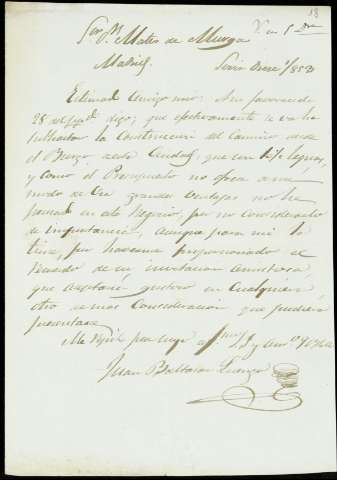 18
Sor Dn Mateo de Murga
Madrid. Soria Enero 1/853
Estimado Amigo mio: A su favorecida
28 del digo; que efectivamente se va ha
subastar la Construccion del Camino desde
el Burgo, a esta Ciudad, que son leguas,
y como el Presupuesto no ofrece a mi
modo de ver grandes ventajas no he
pensado en este Negocio, por no considerarlo
de importancia, aunque para mi la
tiene, por haverme proporcionado el
de su invitacion amistosa,
que aceptaré gustoso en cualquiera
otro de mas Consideracion que pudiera
presentarse
Me repito por suyo y amo Q.B.S.M.
Juan Baltasar